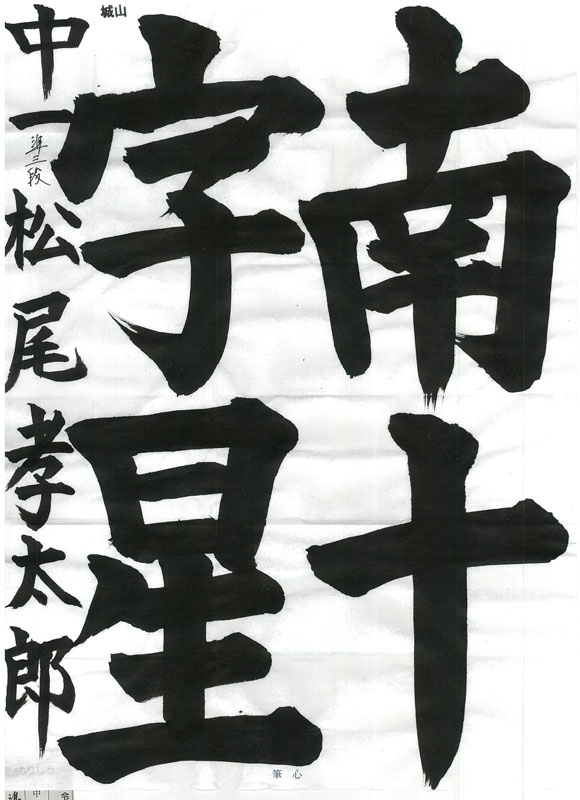 南十
字星
中一 準三段 松尾孝太郎
城山
筆心
のりしろ
中
令